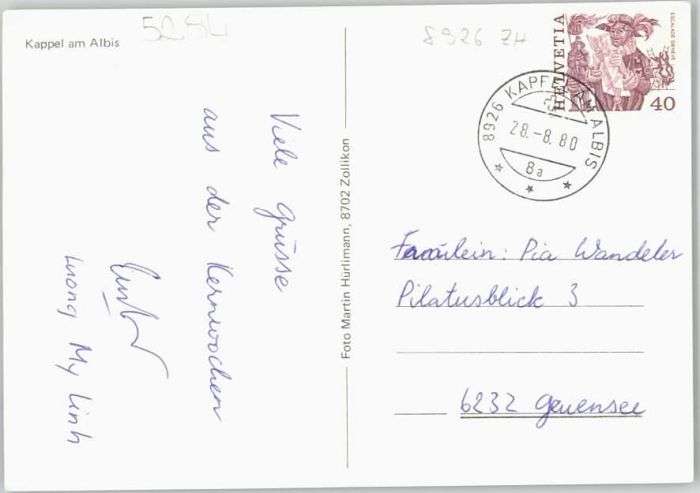 Kappel am Albis
5254
8926 ZH
HELVETIA
40
8926 KAPPEL AM ALBIS
28.-8.80
8a
Viele Grüsse
aus der Kernwochen
Luong My Linh
Foto Martin Hürlimann, 8702 Zollikon
Fräulein: Pia Wandeler
Pilatusblick 3
6232 Geuensee